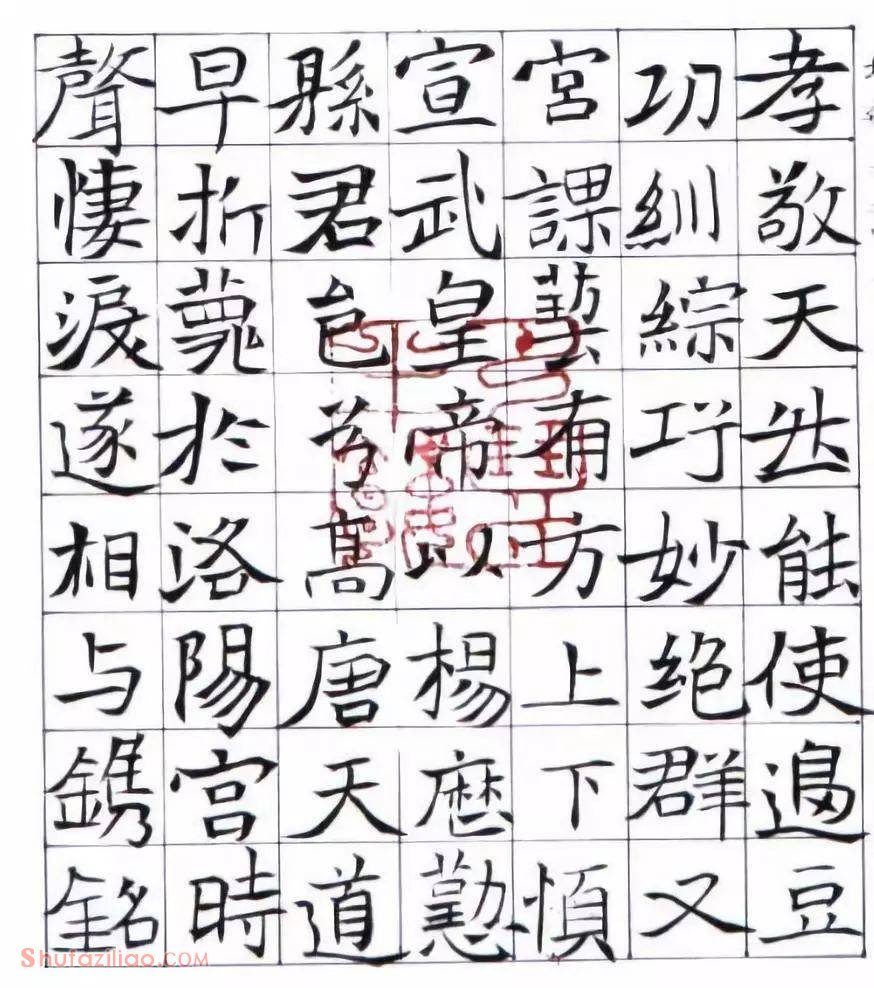 孝敬天然能使邊豆
功紃綜巧妙絕群又
宮課藝有方上下慎
宣武皇帝以楊歷懃
縣君邑兮高唐天道
早折薨於洛陽宮時
聲悽淚遂相与鐫銘
Shufaziliao.COM